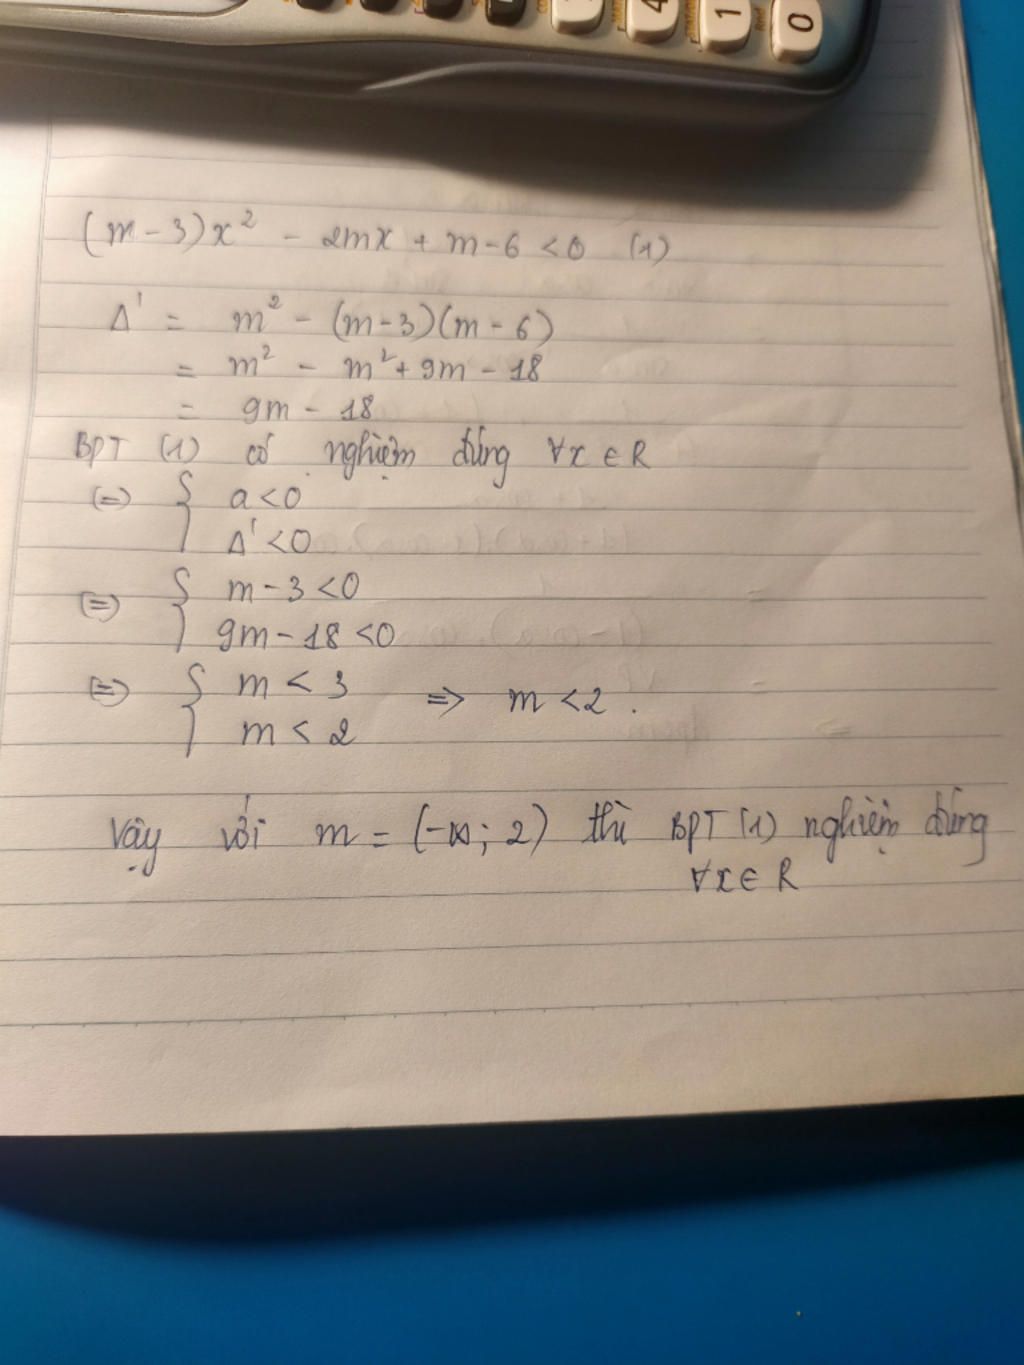 4 1 0
(m-3)x² - 2mx + m-6 <0 (1)
Δ' = m² - (m-3)(m-6)
= m² - m² + 9m - 18
= 9m - 18
BPT (1) có nghiệm đúng ∀x ∈ R
(=) { a<0
Δ' <0
(=) { m-3 <0
9m-18 <0
(=) { m < 3 => m <2 .
m < 2
Vậy với m = (-∞; 2) thì BPT (1) nghiệm đúng
∀x ∈ R